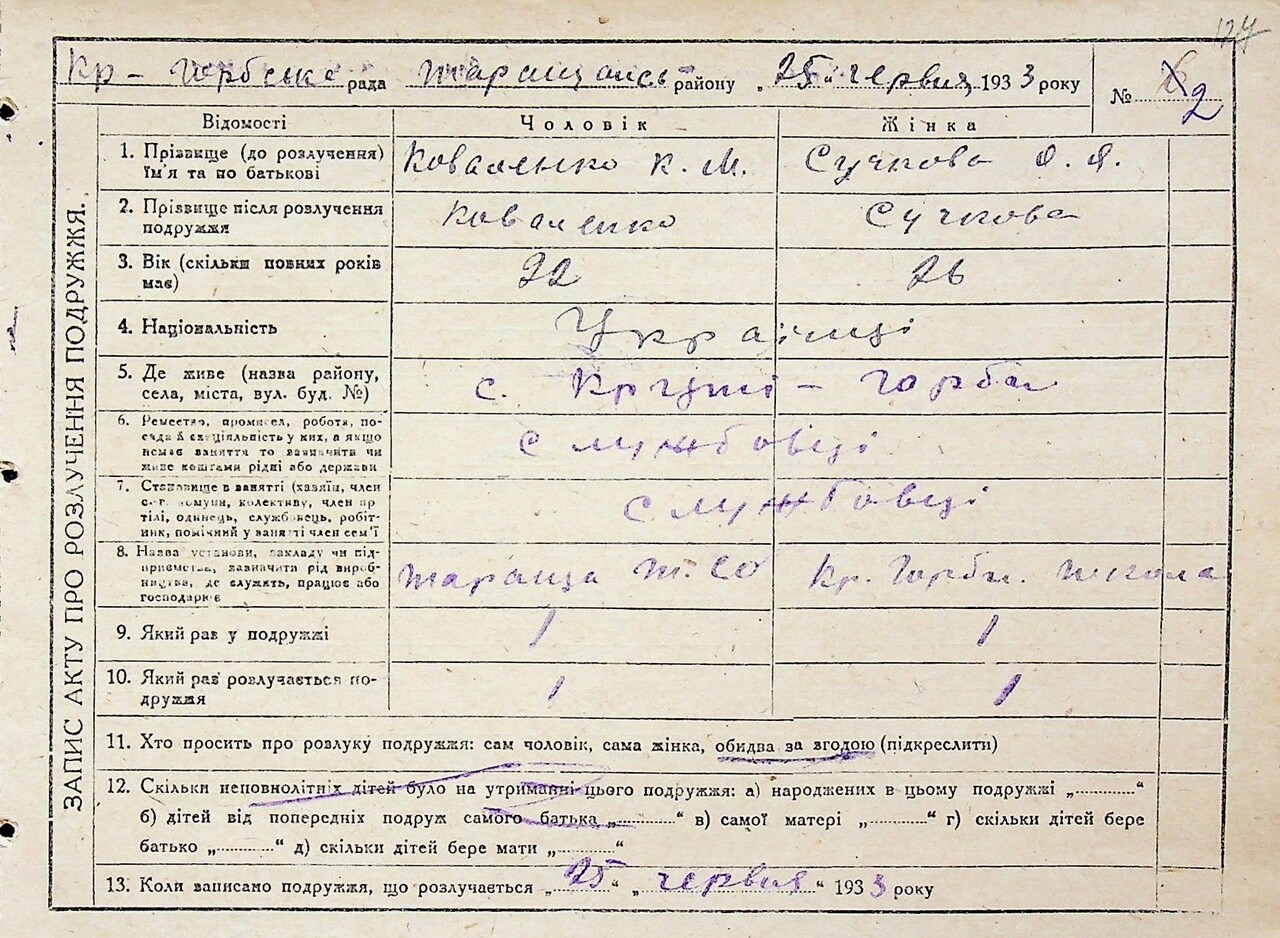 127
Кр - Горбська рада Таращансь району „25" червня, 1933 року № 2
ЗАПИС АКТУ ПРО РОЗЛУЧЕННЯ ПОДРУЖЖЯ.
Відомості Чоловік Жінка
1. Прізвище (до розлучення) Коваленко К. М. Сучкова О. Я.
ім'я та по батькові
2. Прізвище після розлучення Коваленко Сучкова
подружжя
3. Вік (скільки повних років 22 26
має)
4. Національність Українці
5. Де живе (назва району, с. Круті - Горби
села, міста, вул. буд. №)
6. Ремество, промисел, робота, по-
сада й спеціяльність у них, а якщо Службовці
немає заняття то зазначити чи
живе коштами рідні або держави
7. Становище в занятті (хазяїн, член
с.-г. комуни, колективу, член ар
тілі, одинець, службовець, робіт- Службовці
ник, помічний у занятті член сем'ї
8. Назва установи, закладу чи під-
приємства, зазначити рід вироб- Тараща Кр. Горби. школа
ництва, де служить, працює або
господарює
9. Який раз у подружжі 1 1
10. Який раз розлучається по- 1 1
дружжя
11. Хто просить про розлуку подружжя: сам чоловік, сама жінка, обидва за згодою (підкреслити)
12. Скільки неповнолітніх дітей було на утриманні цього подружжя: а) народжених в цьому подружжі „..........."
б) дітей від попередніх подруж самого батька „..........." в) самої матері „..........." г) скільки дітей бере
батько „..........." д) скільки дітей бере мати „..........."
13. Коли записано подружжя, що розлучається „25" „червня" 1933 року